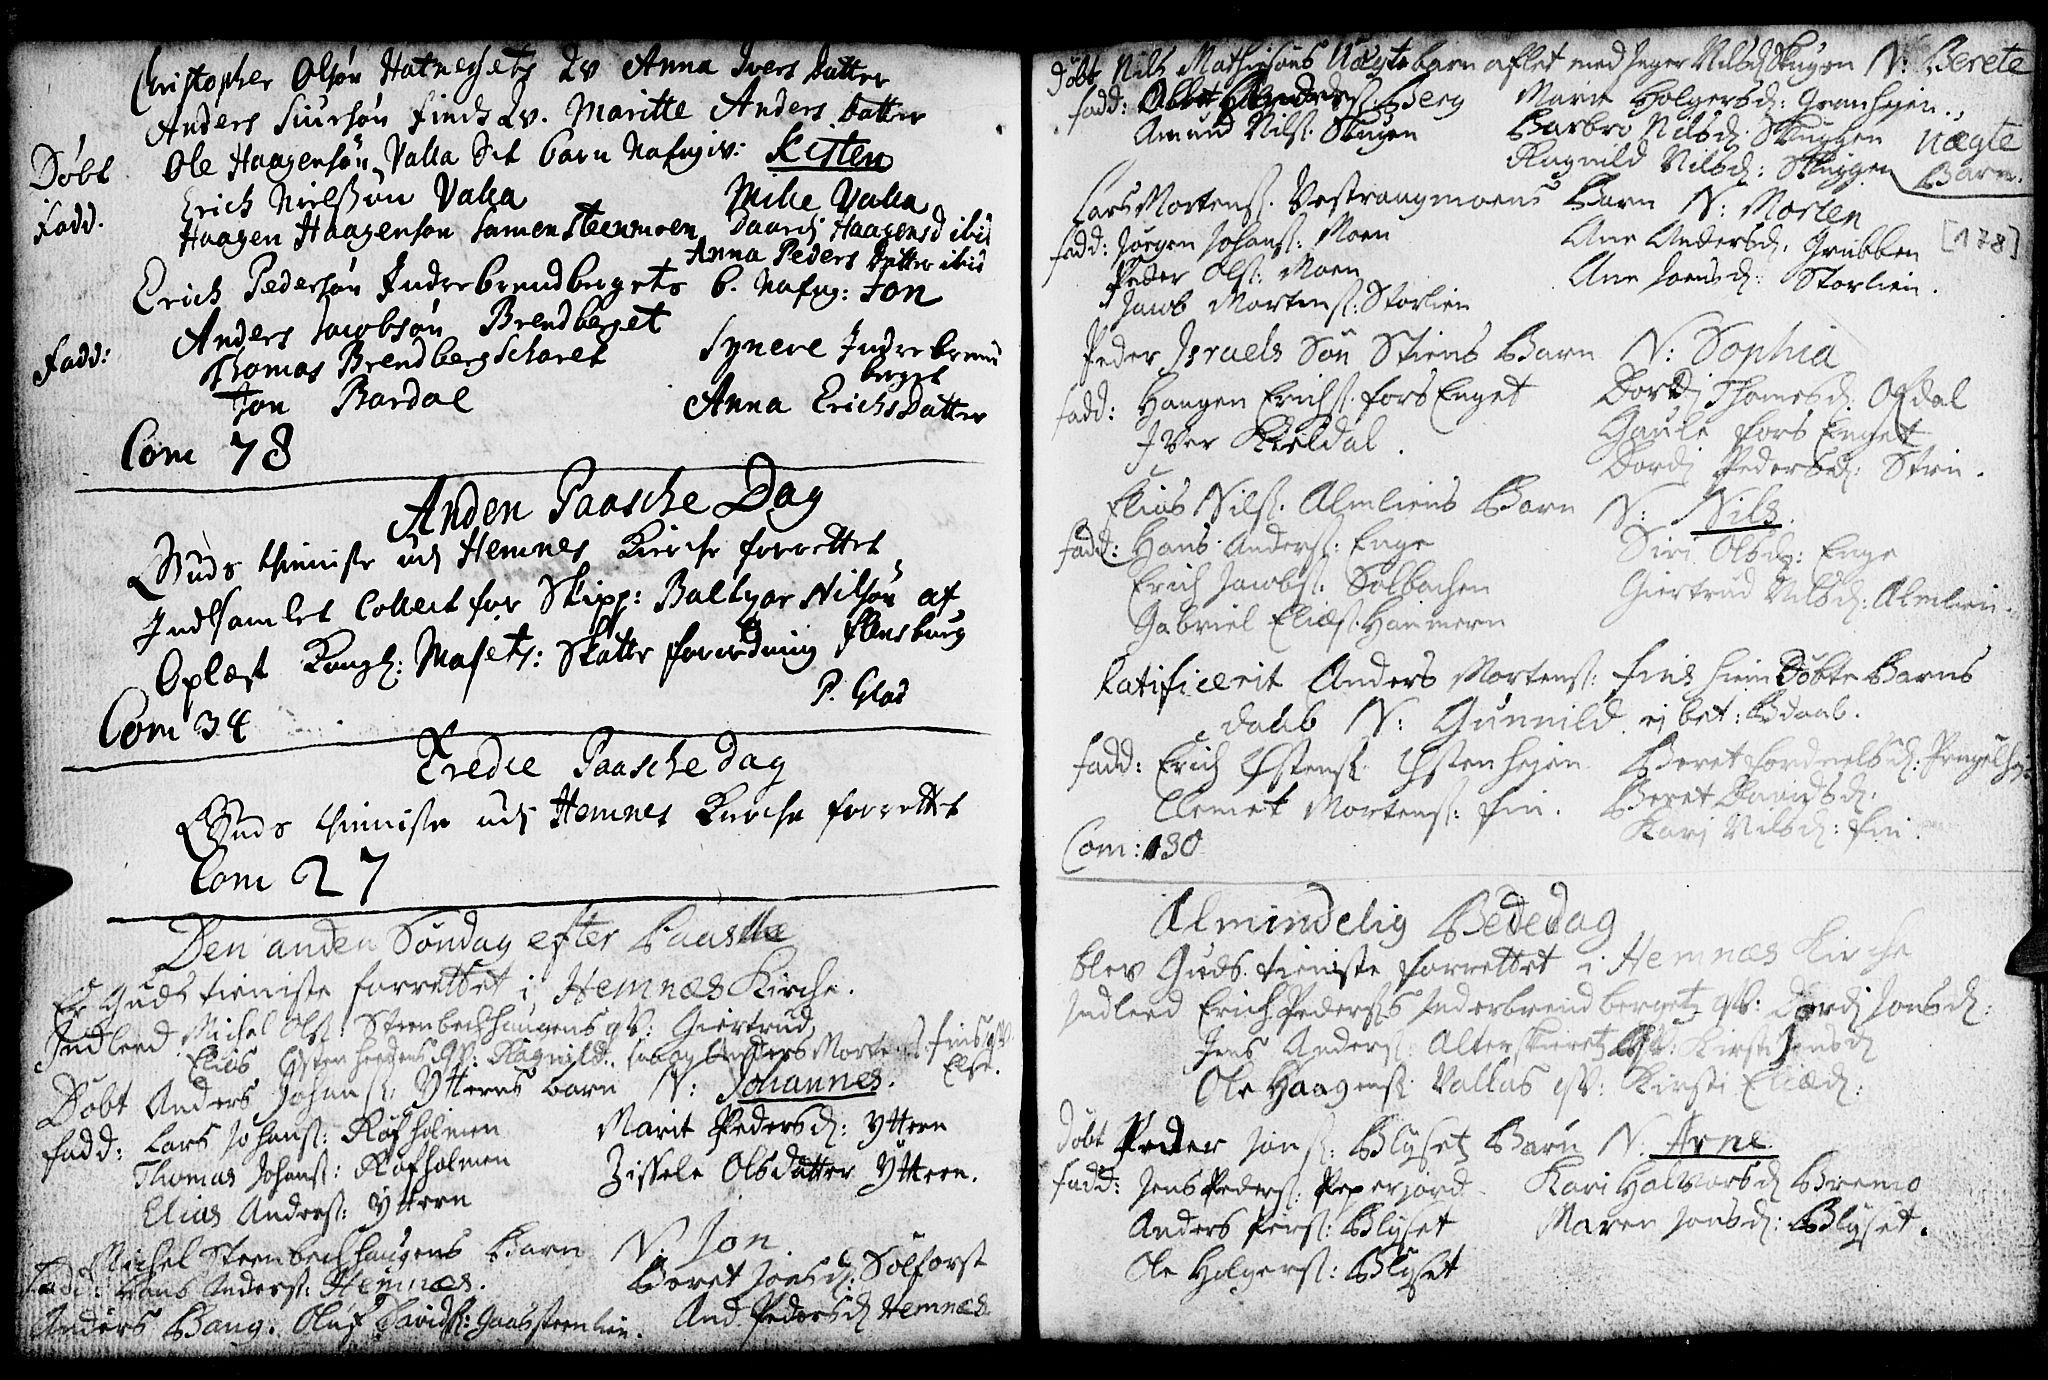 Christopher Olsøn Hatnesets Qv Anna Ivers Datter
Anders Siursøn Find: Qv. Maritte Anders Datter
Døbt Ole Haagensøn Valla Sit barn Nafngiv: Kisten
Fadd. Erich Nielssøn Valla Mille Valla
Haagen Haagensøn Steenmoen Daardj Haagensd ibid
Anna Peders Datter ibid
Erich Pedersøn Indrebrendbergets b. Nafng: Jon
Anders Jacobsøn Brendberget
Fadd: Thomas Brendberg Scharet Synere Indrebrend
berget
Jon Bardal Anna Erichs Datter
Com 78
Anden Paasche Dag
Guds thieniste udj Hemnes Kirche forrettet
Indsamlet Collect for Skipp: Baltzar Nilsøn af
Flensburg
Oplæst Kongl: Majets: Skatte forordning
P. Glad
Com 34
Tredie Paasche Dag
Guds thieniste udj Hemnes Kirche forrettet
Com 27
Den anden Søndag efter Paaske
Er Guds tieniste forrettet i Hemnæs Kirche.
Indleed Michel Ols: Steenbechhaugens qv: Giertrud
Elias Østen heyens qv: Ragnild. Anders Mortens Fins qv.
Else.
Døbt Anders Johans: Ytterns barn N: Johannes.
fadd: Lars Johans: Røfholmen Marit Pedersd: Yttern
Thomas Johans: Røfholmen Zissele Olsdatter Yttern.
Elias Anders: Yttern
Michel Steenbechhaugens Barn N: Jon.
fadd: Hans Anders: Hemnæs. Beret Jonsd: Solforst
Anders Bang. Oluf Davids: Gaassteenlien. And Pedersd Hemnæs
Døbt Nils Mathisøns Uægte barn aflet med Inger Nilsd Skugen N: Berete
fadd: Berg Marit Holgersd: Granheien.
Amund Nils: Skugen Barbro Nilsd: Skuggen Uægte
Ragnild Nilsd: Skuggen Barn.
Lars Mortens: Vestrangmoens Barn N: Morten
fadd: Jørgen Johans: Moen Ane Andersd: Grubben [178]
Peder Ols: Moen Ane Joensd: Storlien.
Jacob Mortens: Storlien
Peder Israels Søn Stiens Barn N: Sophia
fadd: Haagen Erichs: Fors Enget Dordj Thomesd: Ofdal
Iver Kieldal. Gaule Fors Enget
Dordj Pedersd: Stien.
Elias Nils: Almliens Barn N: Nils.
fadd: Hans Anders: Enge Siri Olsd: Enge
Erich Jacobs: Solbachen Giertrud Nilsd: Almlien.
Gabriel Elias: Hammern
Ratificerit Anders Mortens: Fins hiem Døbte Barns
daab N: Gunnild ej bet: Bdaab.
fadd: Erich Østens: Østenheyen Beret
Clemet Mortens: Fin. Beret Davidsd:
Karj Nilsd: Fin.
Com: 130
Almindelig Bededag
blev Guds tieniste forrettet i Hemnæs Kirche
Indleed Erich Peders: Inderbrendbergetz qv: Dordj Jonsd:
Jens Anders: Alterskieretz qv: Kirstj Jensd
Ole Haagens: Vallas qv: Kirsti Eliæd:
Døbt Peder Jons: Blysetz Barn N. Arne
fadd: Jens Peders: Peperjord Kari Halvorsd Bremo
Anders Pers: Blyset Maren Jonsd: Blyset.
Ole Holgers: Blyset